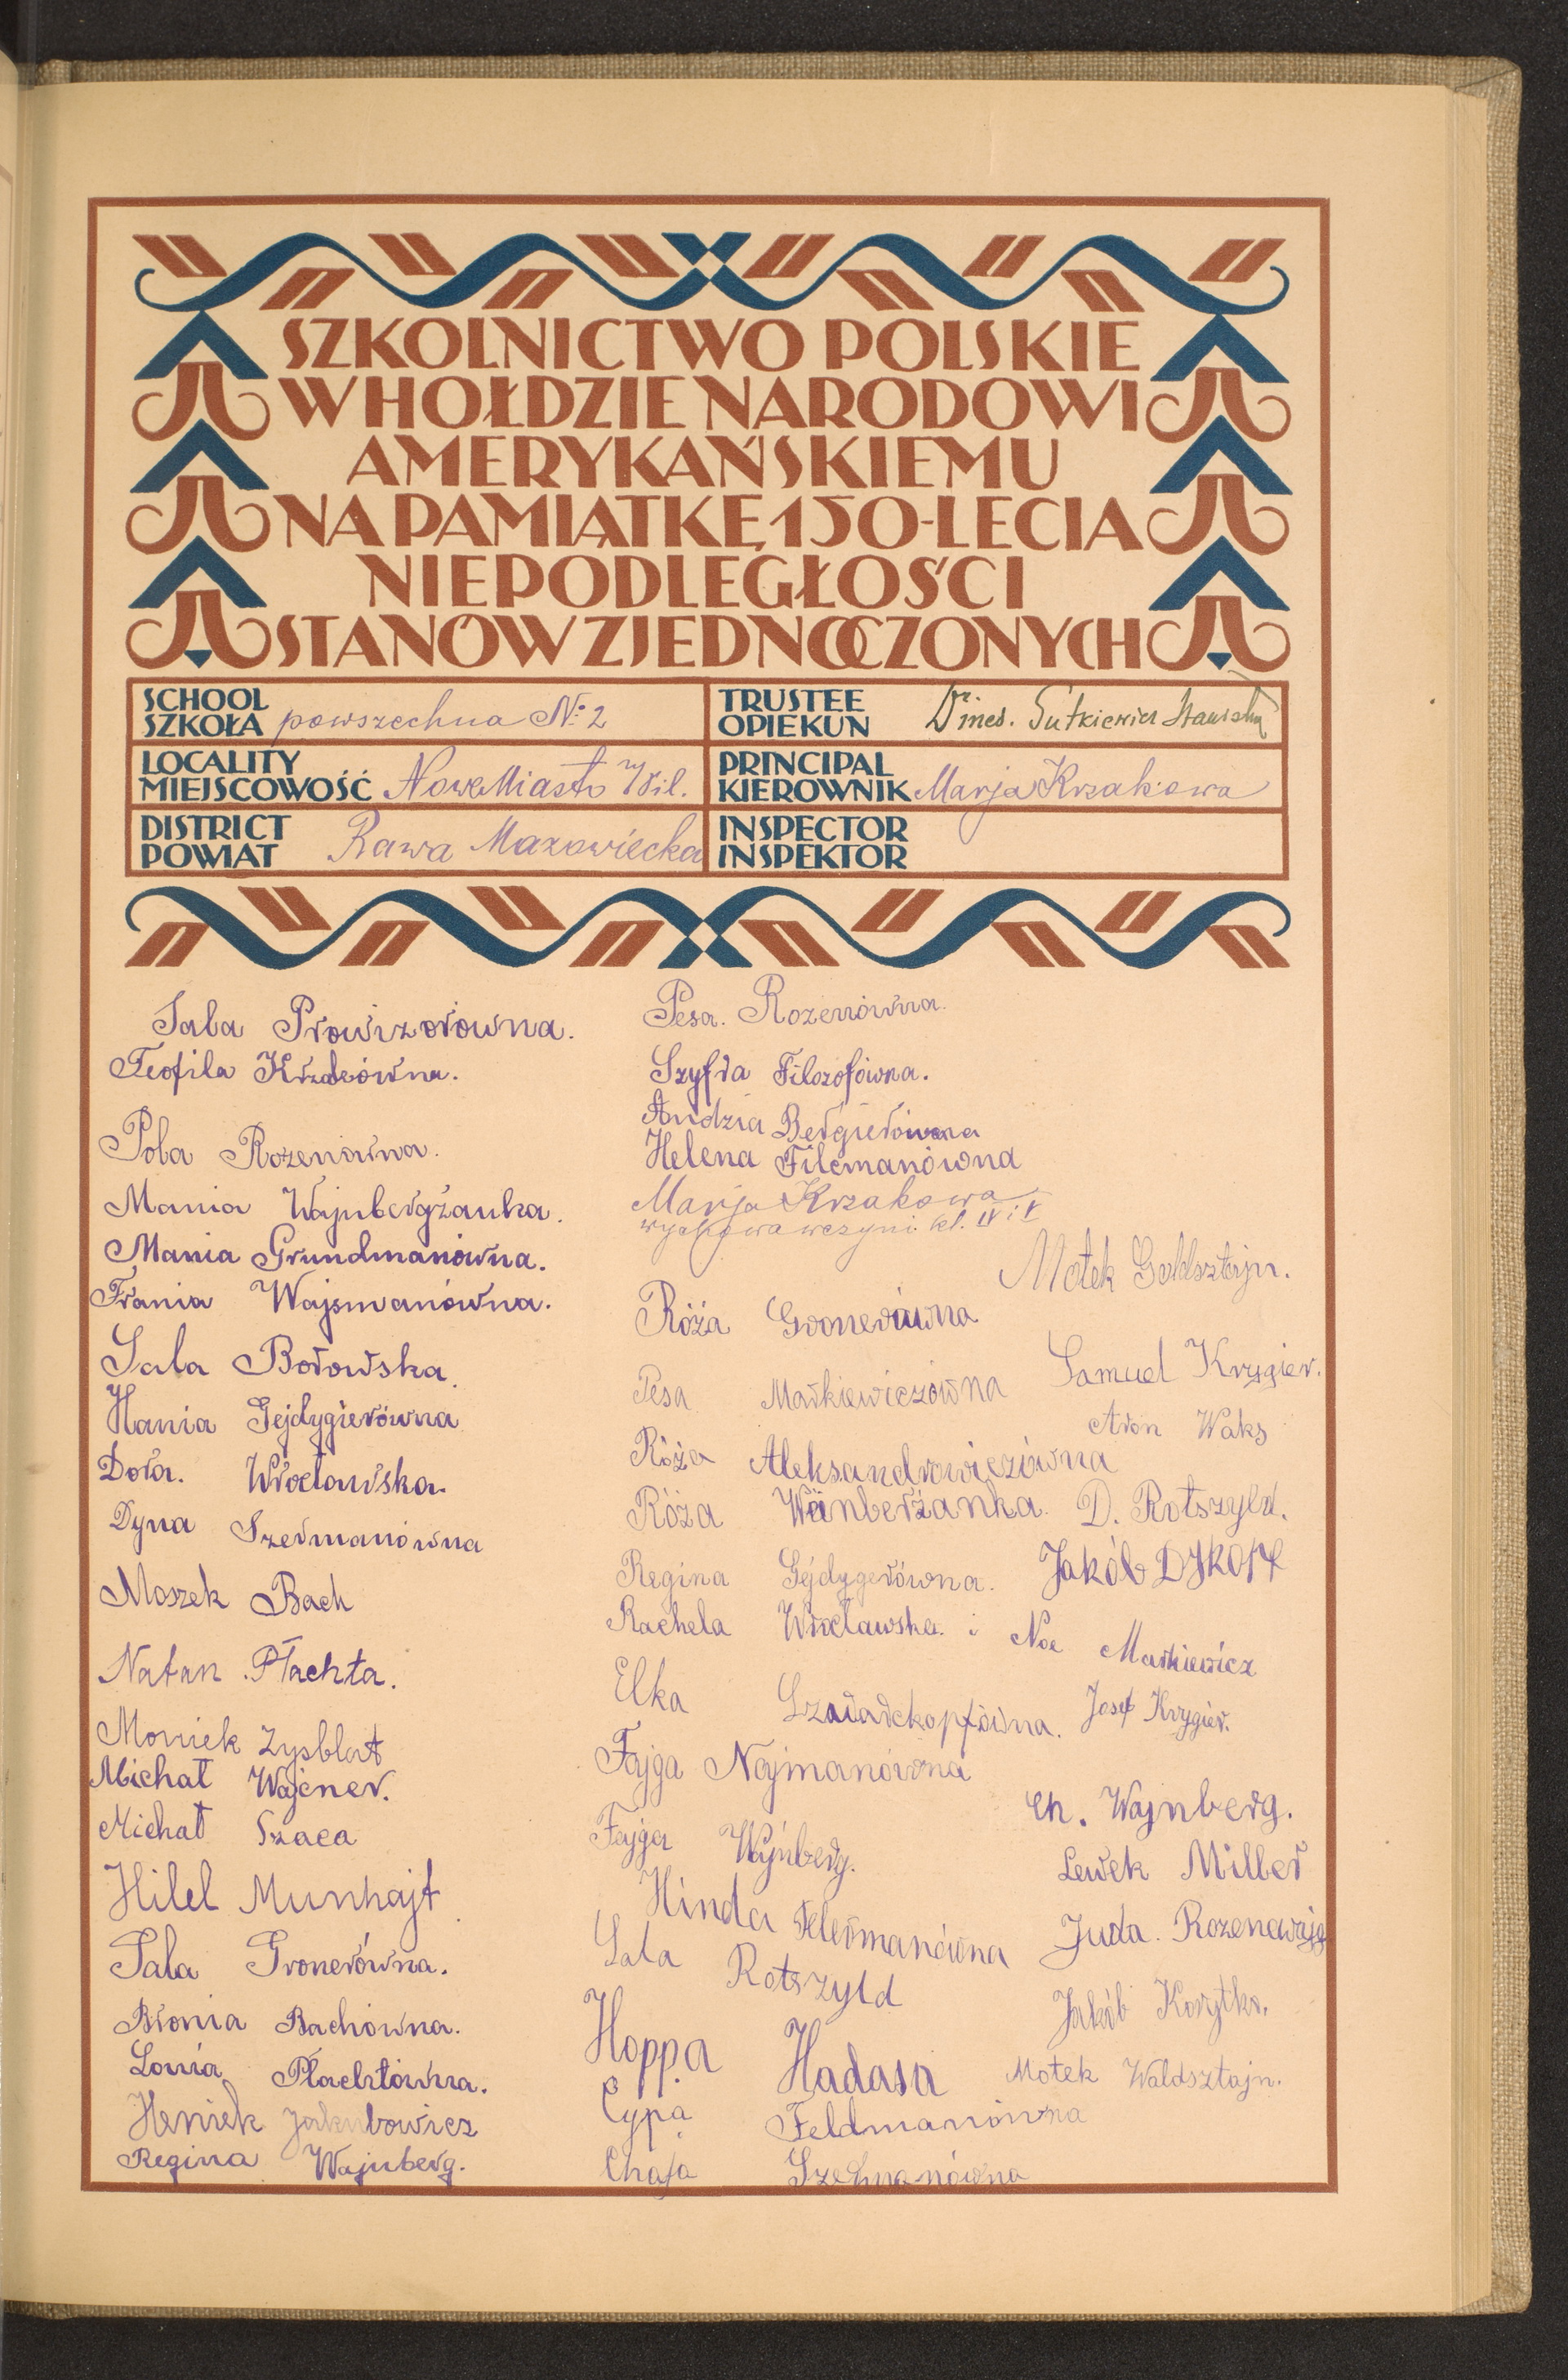 SZKOLNICTWO POLSKIE
W HOŁDZIE NARODOWI
AMERYKAŃSKIEMU
NA PAMIĄTKĘ 150-LECIA
NIEPODLEGŁOŚCI
STANÓW ZJEDNOCZONYCH
SCHOOL
SZKOŁA powszechna № 2
TRUSTEE
OPIEKUN Dr med.
LOCALITY
MIEJSCOWOŚĆ Nowe Miasto
PRINCIPAL
KIEROWNIK Marja Krzakowa
DISTRICT
POWIAT Rawa Mazowiecka
INSPECTOR
INSPEKTOR
Sala Prowizorowna.
Teofila
Pola Rozenówna.
Mania Wajnbergżanka.
Mania Grundmanówna.
Frania Wajsmanówna.
Sala Borowska.
Hania Gejdygierówna
Dora. Wrocławska.
Dyna Szermanówna
Moszek Bach
Natan Płachta.
Moniek Zysblat
Michał Wajcner.
Michał Szaca
Hilel Munhajt
Sala Gronerówna.
Bronia Bachówna.
Lonia Płachtówna.
Heniek Jakubowicz
Regina Wajnberg.
Pesa. Rozenówna.
Szyfra Filozofówna.
Andzia Bergierówna
Helena Filemanówna
Marja Krzakowa
kl. IV i V
Róża Gronerówna
Pesa Markiewiczówna
Róża Aleksandrowiczówna
Róża
Regina Gejdygerówna.
Rachela Wrocławska.
Elka
Fajga Najmanówna
Fajga Wajnberg.
Hinda
Sala Rotszyld
Hoppa Hadasa
Cypa Feldmanówna
Chaja
Motek Goldsztajn.
Samuel Krygier.
Aron Waks
D. Rotszyld.
Jakób
Noe Markiewicz
Josef Krygier.
Ch. Wajnberg.
Lewek Miller
Juda.
Jakób
Motek Waldsztajn.